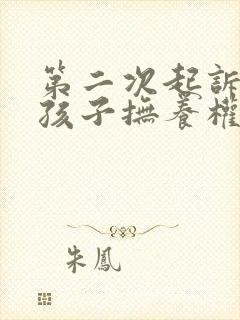 第二次起訴
孩子撫養權
朱鳳